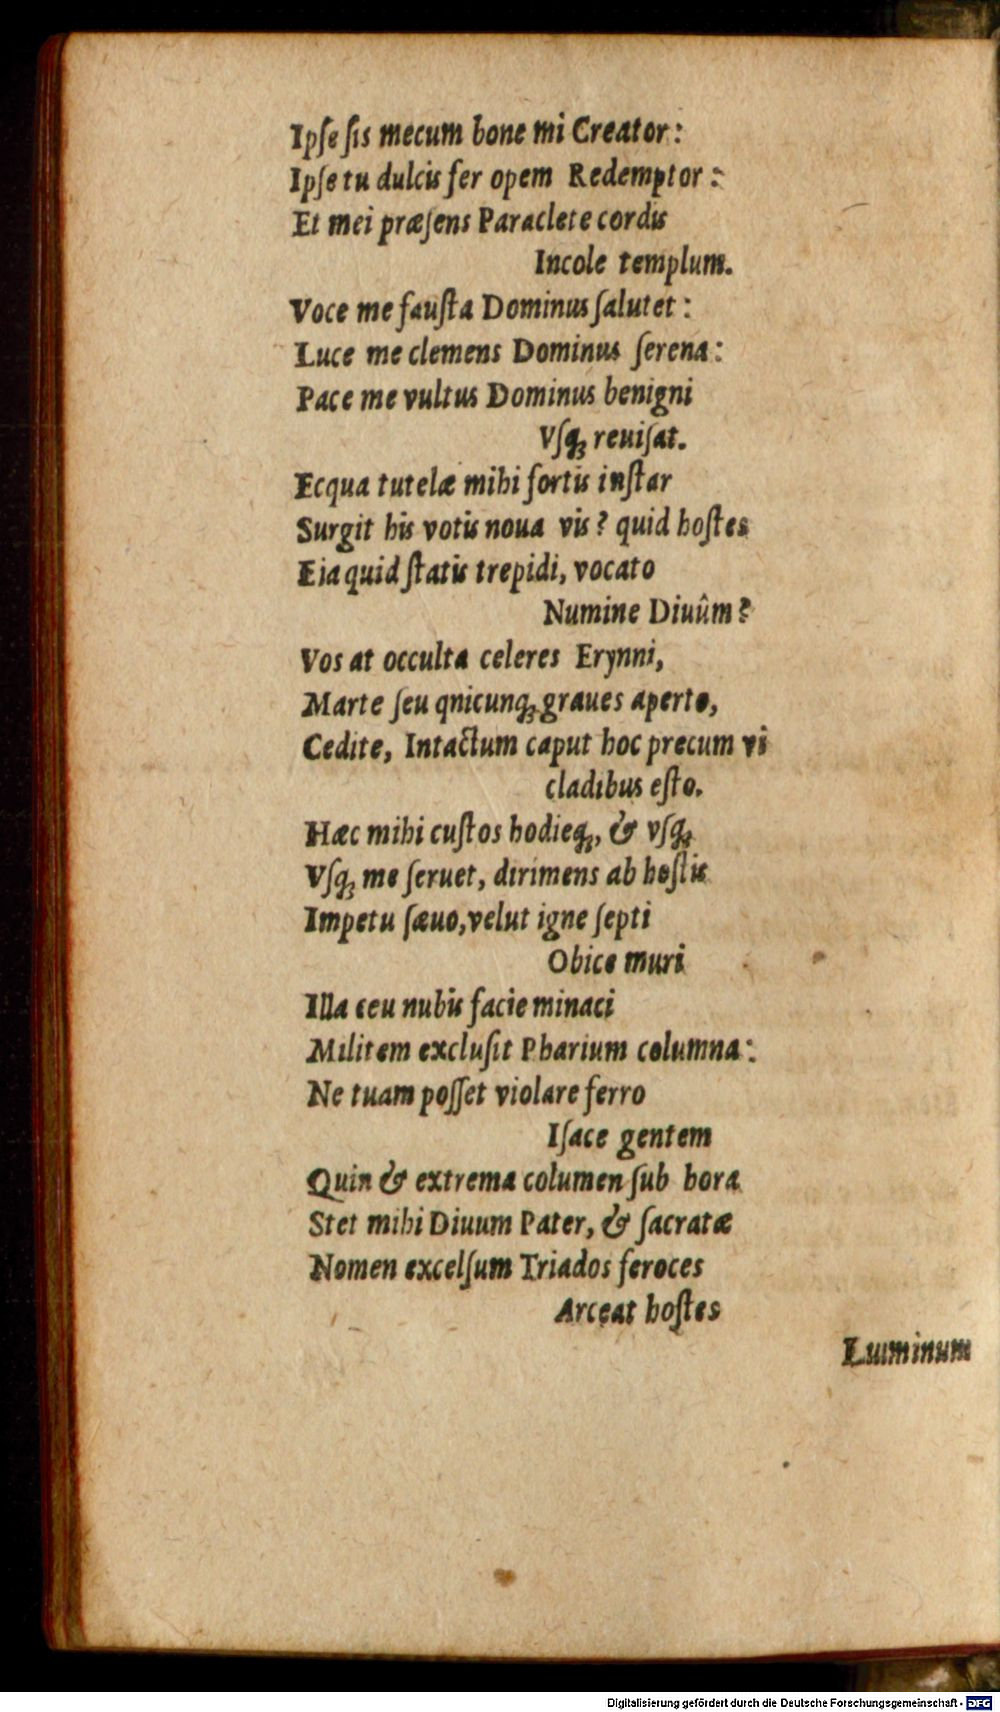 Ipſe ſis mecum bone mi Creator:
Ipſe tu dulcis fer opem Redemptor:
Et mei præſens Paraclete cordis
Incole templum.
Voce me fauſta Dominus ſalutet:
Luce me clemens Dominus ſerena:
Pace me vultus Dominus benigni
Vſq; reuiſat.
Ecqua tutelæ mihi fortis inſtar
Surgit his votis noua vis? quid hoſtes
Eia quid ſtatis trepidi, vocato
Numine Diuûm?
Vos at occulta celeres Erynni,
Marte ſeu qnicunq; graues aperto,
Cedite, Intactum caput hoc precum vi
cladibus eſto.
Hæc mihi cuſtos hodieq;, & vſq;
Vſq; me ſeruet, dirimens ab hoſtis
Impetu ſæuo, velut igne ſepti
Obice muri
Illa ceu nubis facie minaci
Militem excluſit Pharium columna:
Ne tuam poſſet violare ferro
Iſace gentem
Quin & extrema columen ſub hora
Stet mihi Diuum Pater, & ſacratæ
Nomen excelſum Triados feroces
Arceat hoſtes
Luminum
Digitalisierung gefördert durch die Deutsche Forschungsgemeinschaft - DFG